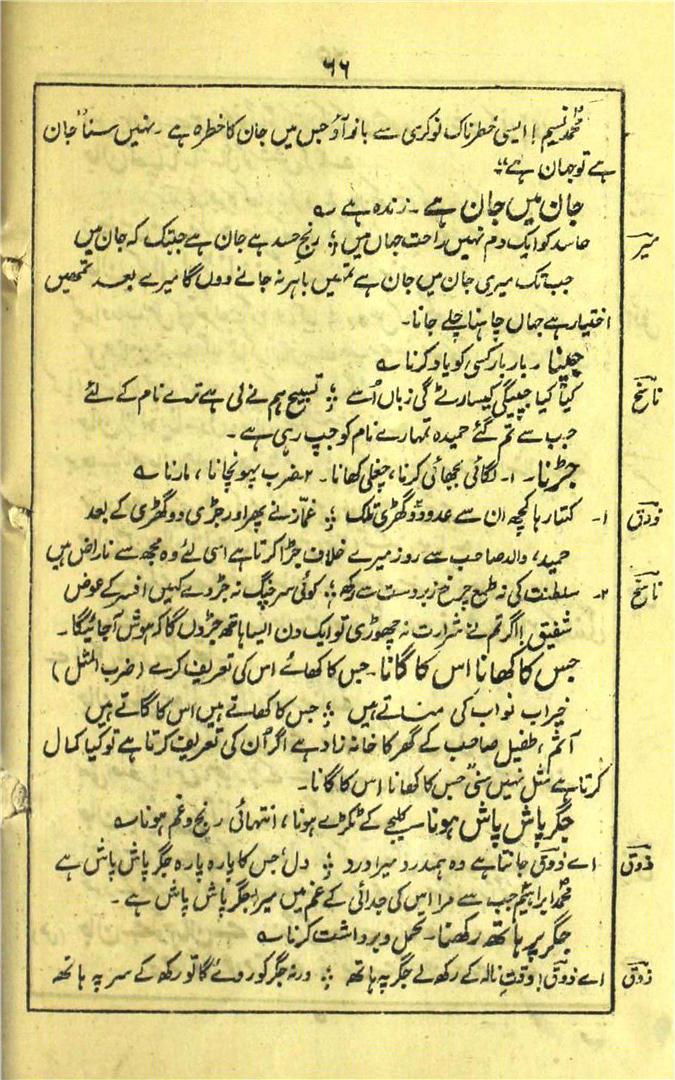 ۶۶
محمد نسیم! ایسی خطرناک نوکری سے باز آؤ جس میں جان کا خطرہ ہے ۔ نہیں سنا "جان
ہے تو جہان ہے"۔
جان میں جان ہے ۔ زندہ ہے ؎
میر حاسد کو ایک دم نہیں راحت جہاں میں ؛ رنج حسد ہے جان ہے جبتک کہ جان میں
جب تک میری جان میں جان ہے تمہیں باہر نہ جانے دوں گا میرے بعد تمھیں
اختیار ہے جہاں چاہنا چلے جانا۔
جپنا ۔ بار بار کسی کو یاد کرنا ؎
ناسخ کیا کیا جپیگی کیسا رٹے گی زباں اُسے ؛ تسبیح ہم نے لی ہے ترے نام کے لئے
جب سے تم گئے حمیدہ تمہارے نام کو جپ رہی ہے ۔
جڑنا ۔ ۱۔ لگائی بجھائی کرنا، چغلی کھانا ۔ ۲۔ ضرب پہونچانا ، مارنا ؎
ذوق ۱۔ کتنا رہا کچھ ان سے عدو دو گھڑی تلک ؛ غماز نے پھر اور جڑی دو گھڑی کے بعد
حمید، والد صاحب سے روز میرے خلاف جڑا کرتا ہے اسی لئے وہ مجھ سے ناراض ہیں
ناسخ ۲۔ سلطنت کی نہ طمع چرخ زبردست سے رکھ ؛ کوئی سر چنگ نہ جڑ دے کہیں افسر کے عوض
شفیق! اگر تم نے شرارت نہ چھوڑی تو ایک دن ایسا ہاتھ جڑوں گا کہ ہوش آجائیگا ۔
جس کا کھانا اس کا گانا ۔ جس کا کھائے اس کی تعریف کرے (ضرب المثل)
خیراب نواب کی مناتے ہیں ؛ جس کا کھاتے ہیں اس کا گاتے ہیں
آثم، طفیل صاحب کے گھر کا خانہ زاد ہے اگر اُن کی تعریف کرتا ہے تو کیا کمال
کرتا ہے مثل نہیں سنی جس کا کھانا اس کا گانا ۔
جگر پاش پاش ہونا ۔ کلیجے کے ٹکڑے ہونا ، انتہائی رنج و غم ہونا ؎
ذوق اے ذوق جانتا ہے وہ ہمدرد میرا درد ؛ دل جس کا پارہ پارہ جگر پاش پاش ہے
محمد ابراہیم جب سے مرا اس کی جدائی کے غم میں میرا جگر پاش پاش ہے ۔
جگر پر ہاتھ رکھنا ۔ تحمل و برداشت کرنا ؎
ذوق اے ذوق! وقت نالہ کے رکھ لے جگر پہ ہاتھ ؛ ورنہ جگر کو روئے گا تو رکھ کے سر پہ ہاتھ